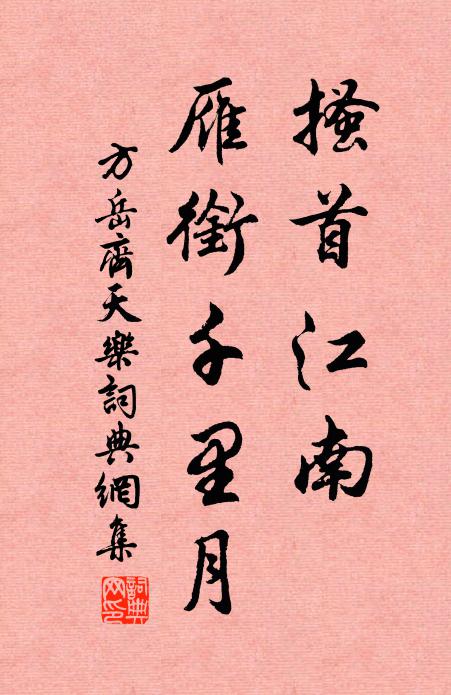 搔首江南
雁銜千里月
方岳齊天樂詞典網集
詞典網印